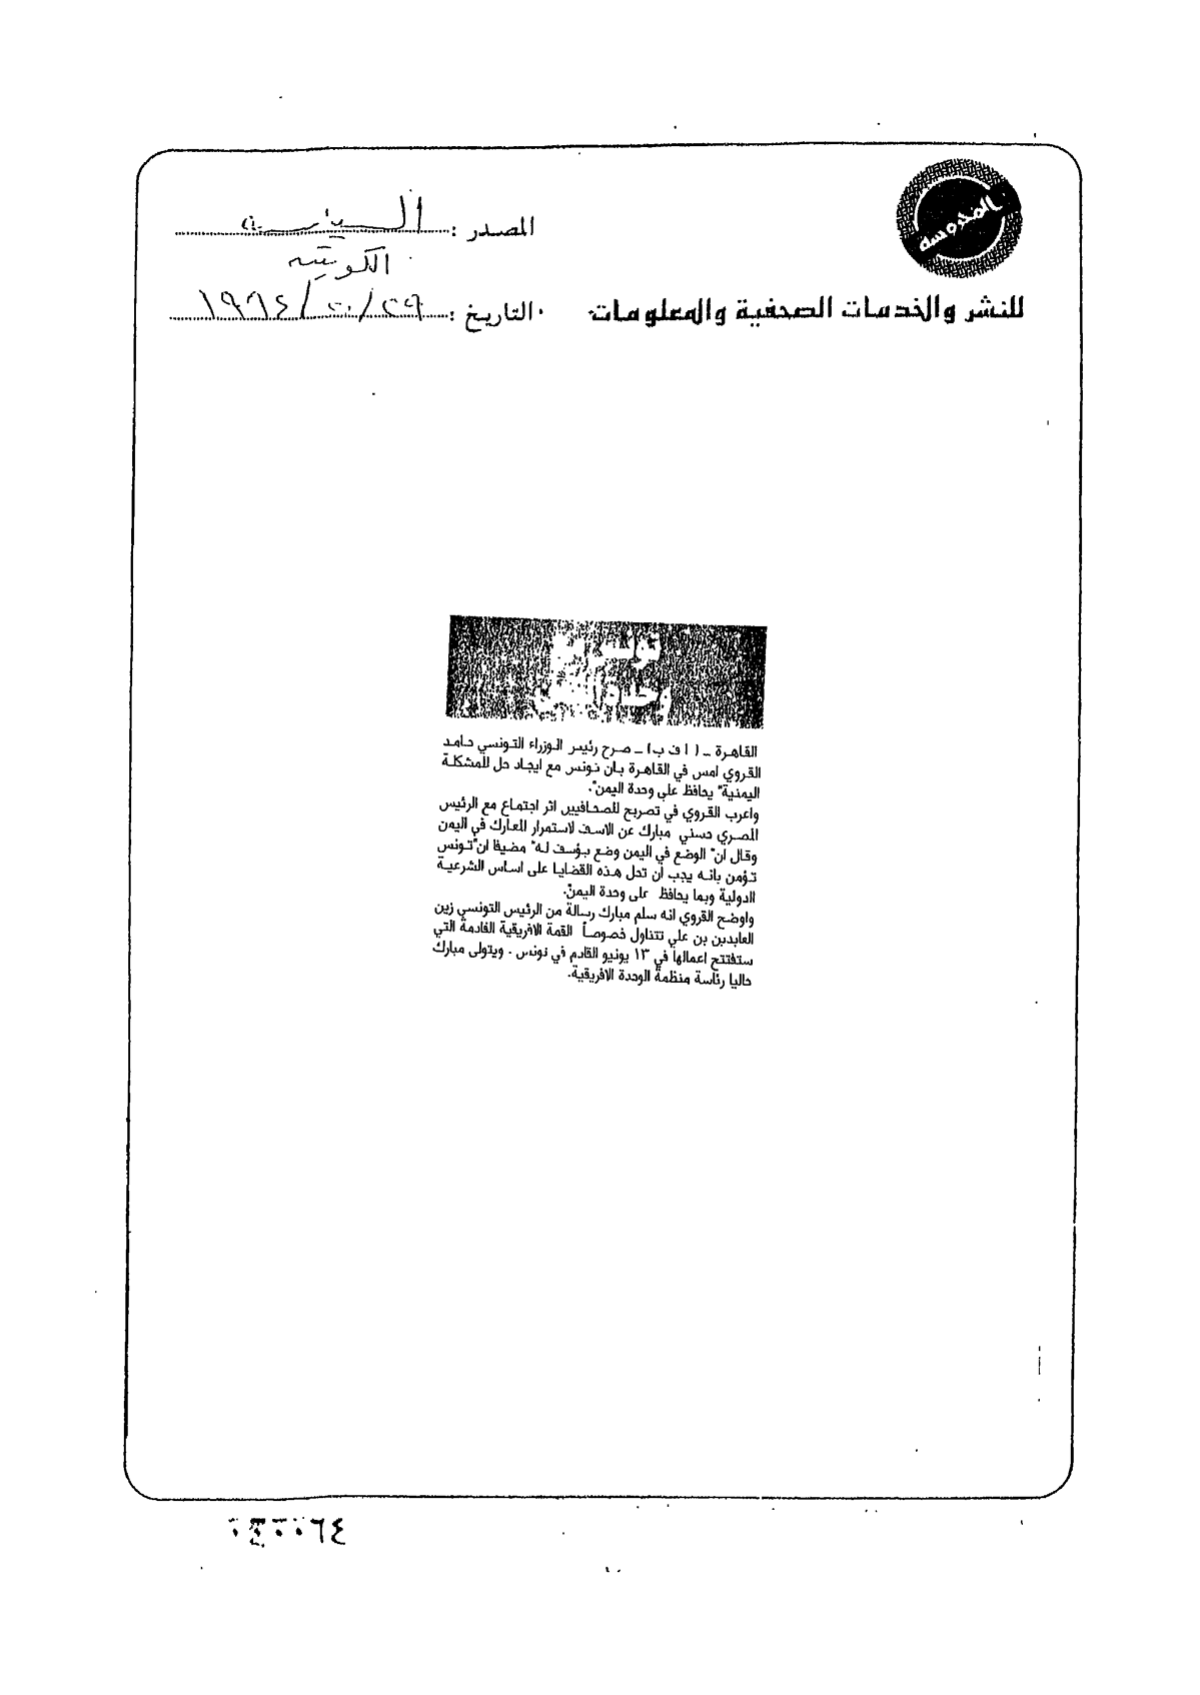 المحروسة
المصدر : السياسة
الكويتية
للنشر والخدمات الصحفية والمعلومات
التاريخ : ٢٩/ /١٩٩٤
تونس مع
وحدة اليمن
القاهرة - (ا ف ب) - صرح رئيس الوزراء التونسي حامد
القروي امس في القاهرة بان تونس مع ايجاد حل للمشكلة
اليمنية" يحافظ على وحدة اليمن".
واعرب القروي في تصريح للصحافيين اثر اجتماع مع الرئيس
المصري حسني مبارك عن الاسف لاستمرار المعارك في اليمن
وقال ان" الوضع في اليمن وضع يؤسف له" مضيفا ان"تونس
تؤمن بانه يجب ان تحل هذه القضايا على اساس الشرعية
الدولية وبما يحافظ على وحدة اليمن".
واوضح القروي انه سلم مبارك رسالة من الرئيس التونسي زين
العابدين بن علي تتناول خصوصاً القمة الافريقية القادمة التي
ستفتتح اعمالها في ١٣ يونيو القادم في تونس . ويتولى مبارك
حاليا رئاسة منظمة الوحدة الافريقية.